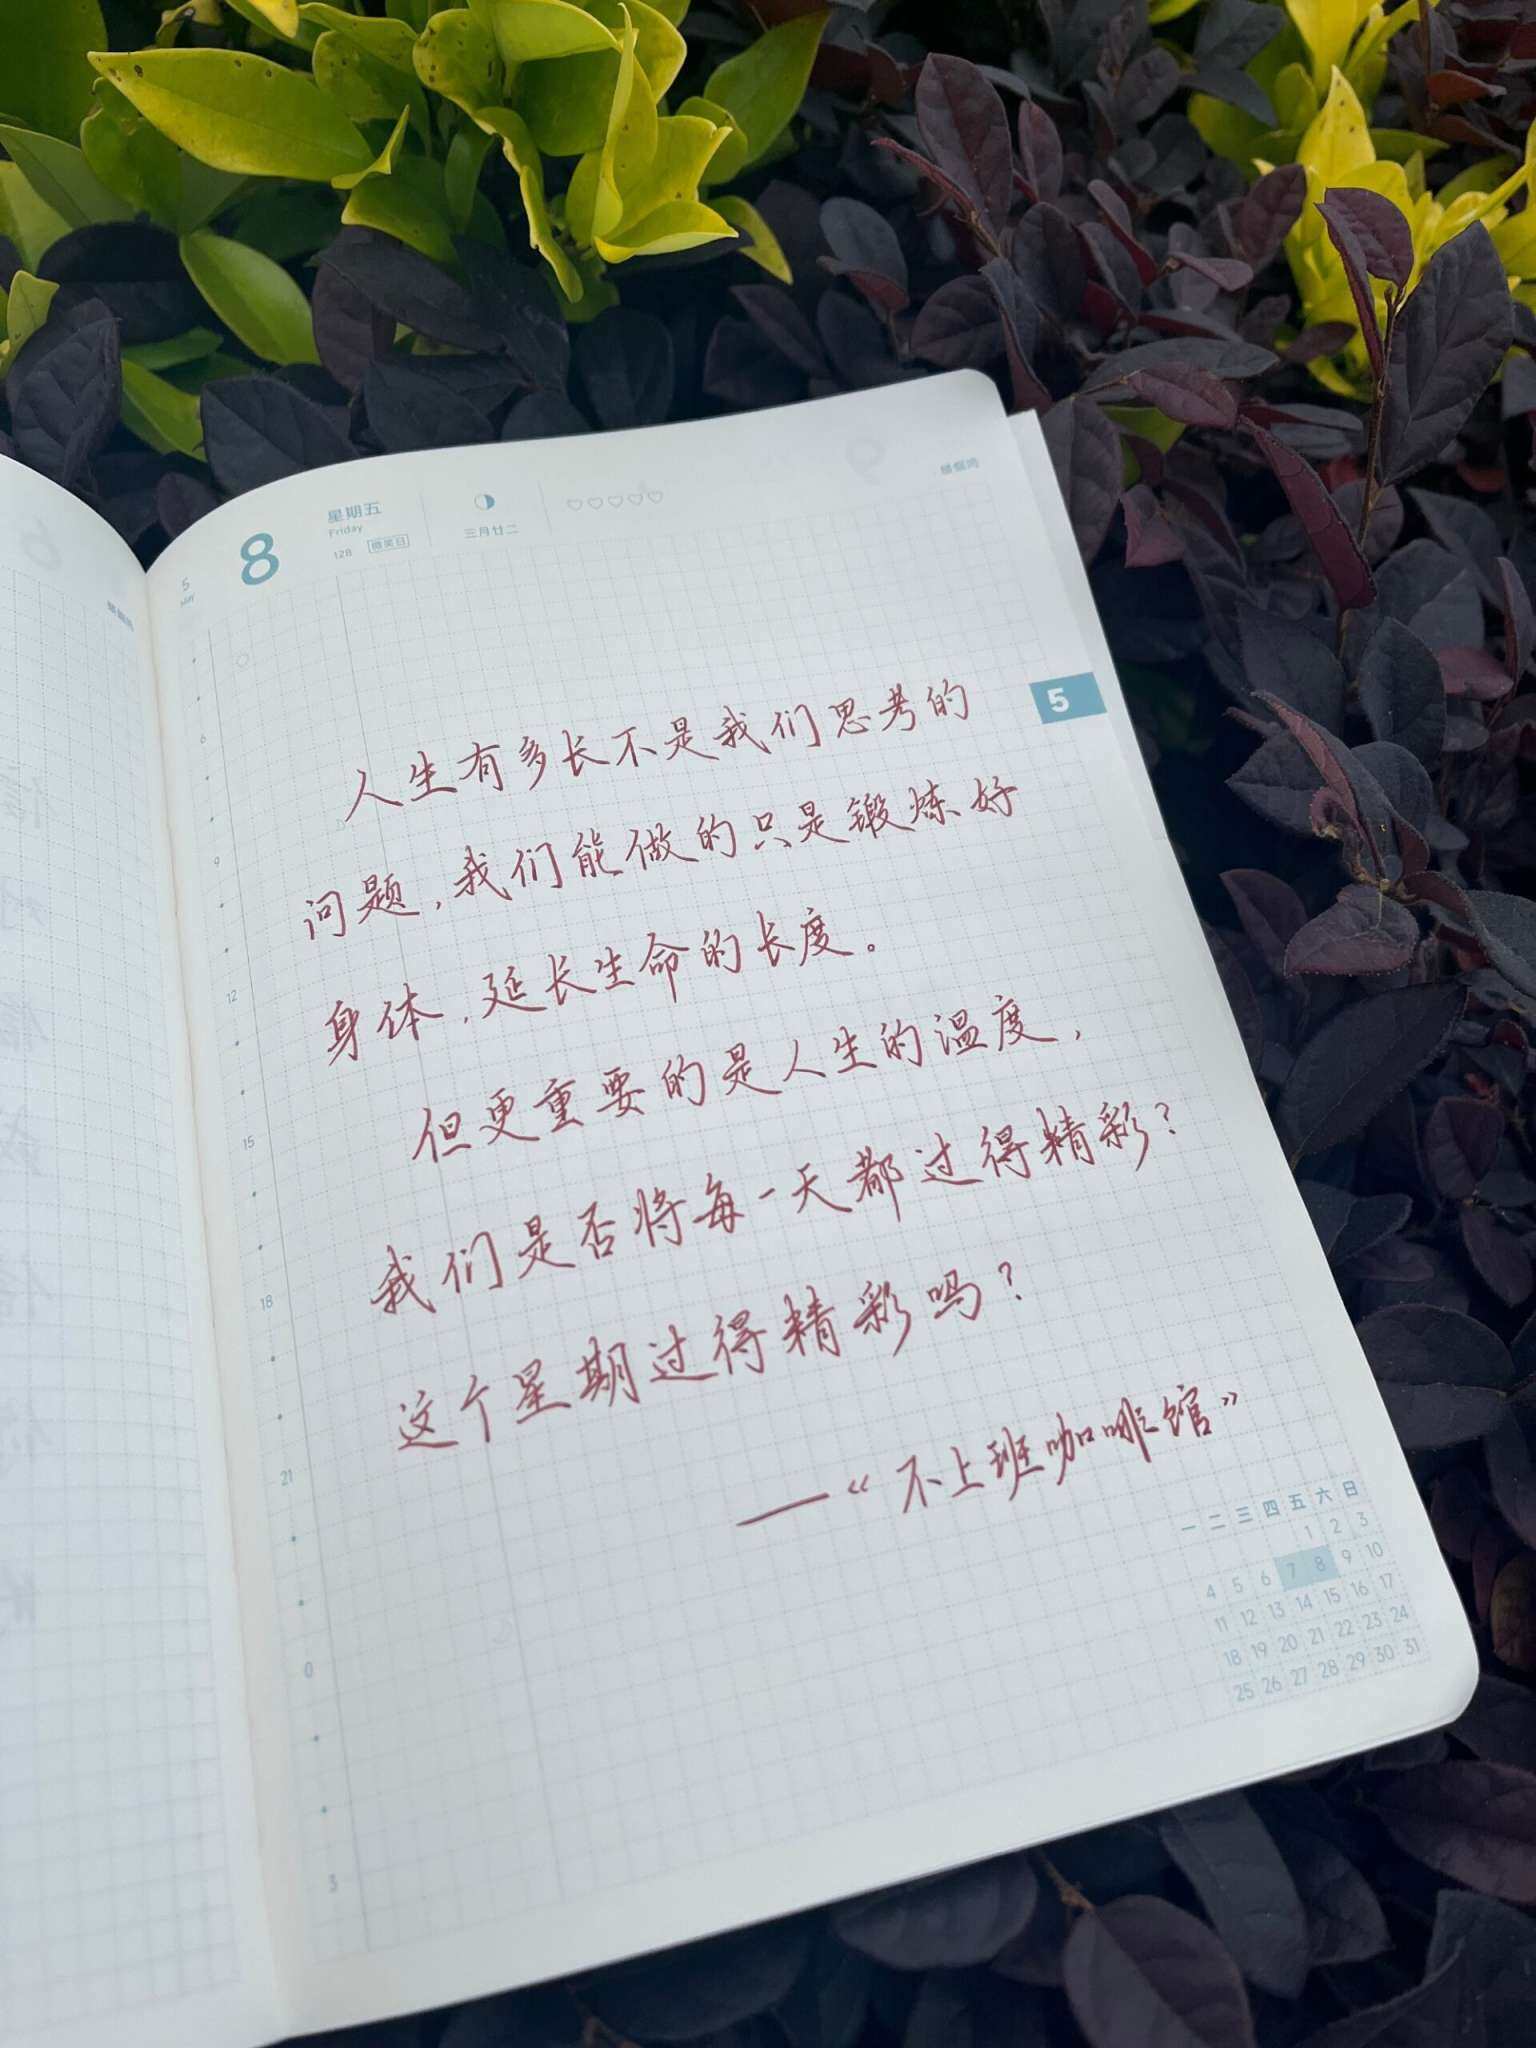 8
星期五
Friday
128 微笑日
三月廿二
5
MAY
5
6
9
12
15
18
21
0
3
人生有多长不是我们思考的
问题，我们能做的只是锻炼好
身体，延长生命的长度。
但更重要的是人生的温度，
我们是否将每一天都过得精彩？
这个星期过得精彩吗？
——《不上班咖啡馆》
一 二 三 四 五 六 日
1 2 3
4 5 6 7 8 9 10
11 12 13 14 15 16 17
18 19 20 21 22 23 24
25 26 27 28 29 30 31